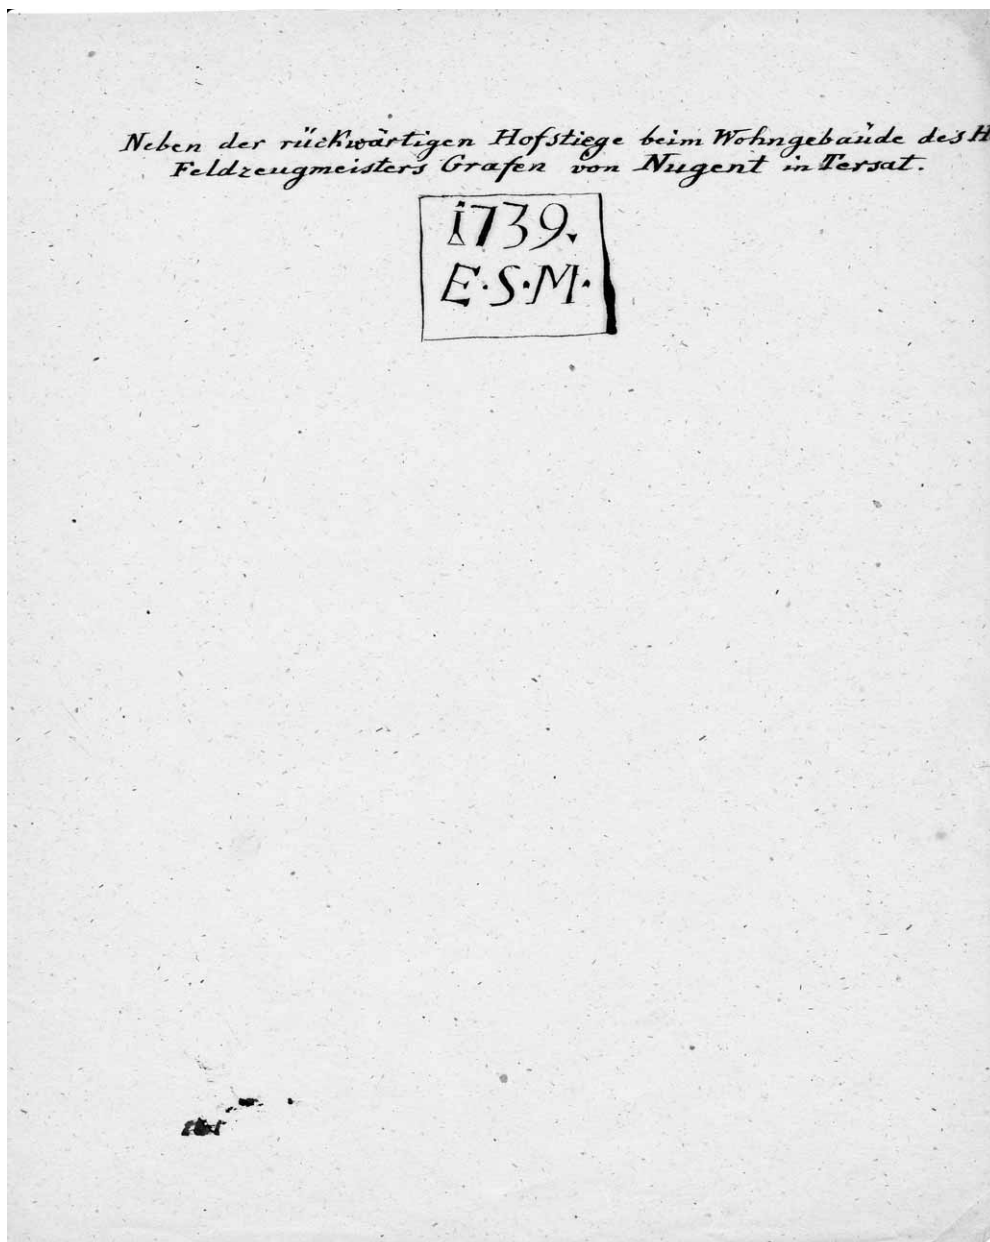 Neben der rückwärtigen Hofstiege beim Wohngebaüde des H
Feldzeugmeisters Grafen von Nugent in Tersat.
1739.
E·S·M·